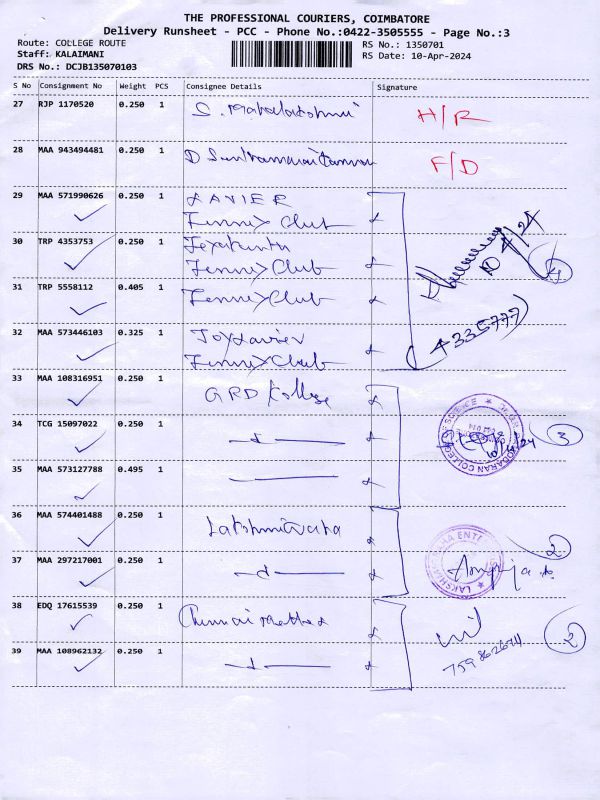 THE PROFESSIONAL COURIERS, COIMBATORE
Delivery Runsheet - PCC - Phone No.:0422-3505555 - Page No.:3
Route: COLLEGE ROUTE
Staff: KALAIMANI
DRS No.: DCJB135070103
RS No.: 1350701
RS Date: 10-Apr-2024
S No Consignment No Weight PCS Consignee Details Signature
27 RJP 1170520 0.250 1 S. Mahalakshmi H/R
28 MAA 943494481 0.250 1 D F/D
29 MAA 571990626 0.250 1 XAVIER
Fennex Club
30 TRP 4353753 0.250 1
Fennex Club
31 TRP 5558112 0.405 1 Fennex Club
4
32 MAA 573446103 0.325 1 Joyxavier
Fennex Club
33 MAA 108316951 0.250 1 GRD College
34 TCG 15097022 0.250 1 3
10/4/24
35 MAA 573127788 0.495 1
36 MAA 574401488 0.250 1
2
37 MAA 297217001 0.250 1
38 EDQ 17615539 0.250 1 Chennai
2
39 MAA 108962132 0.250 1